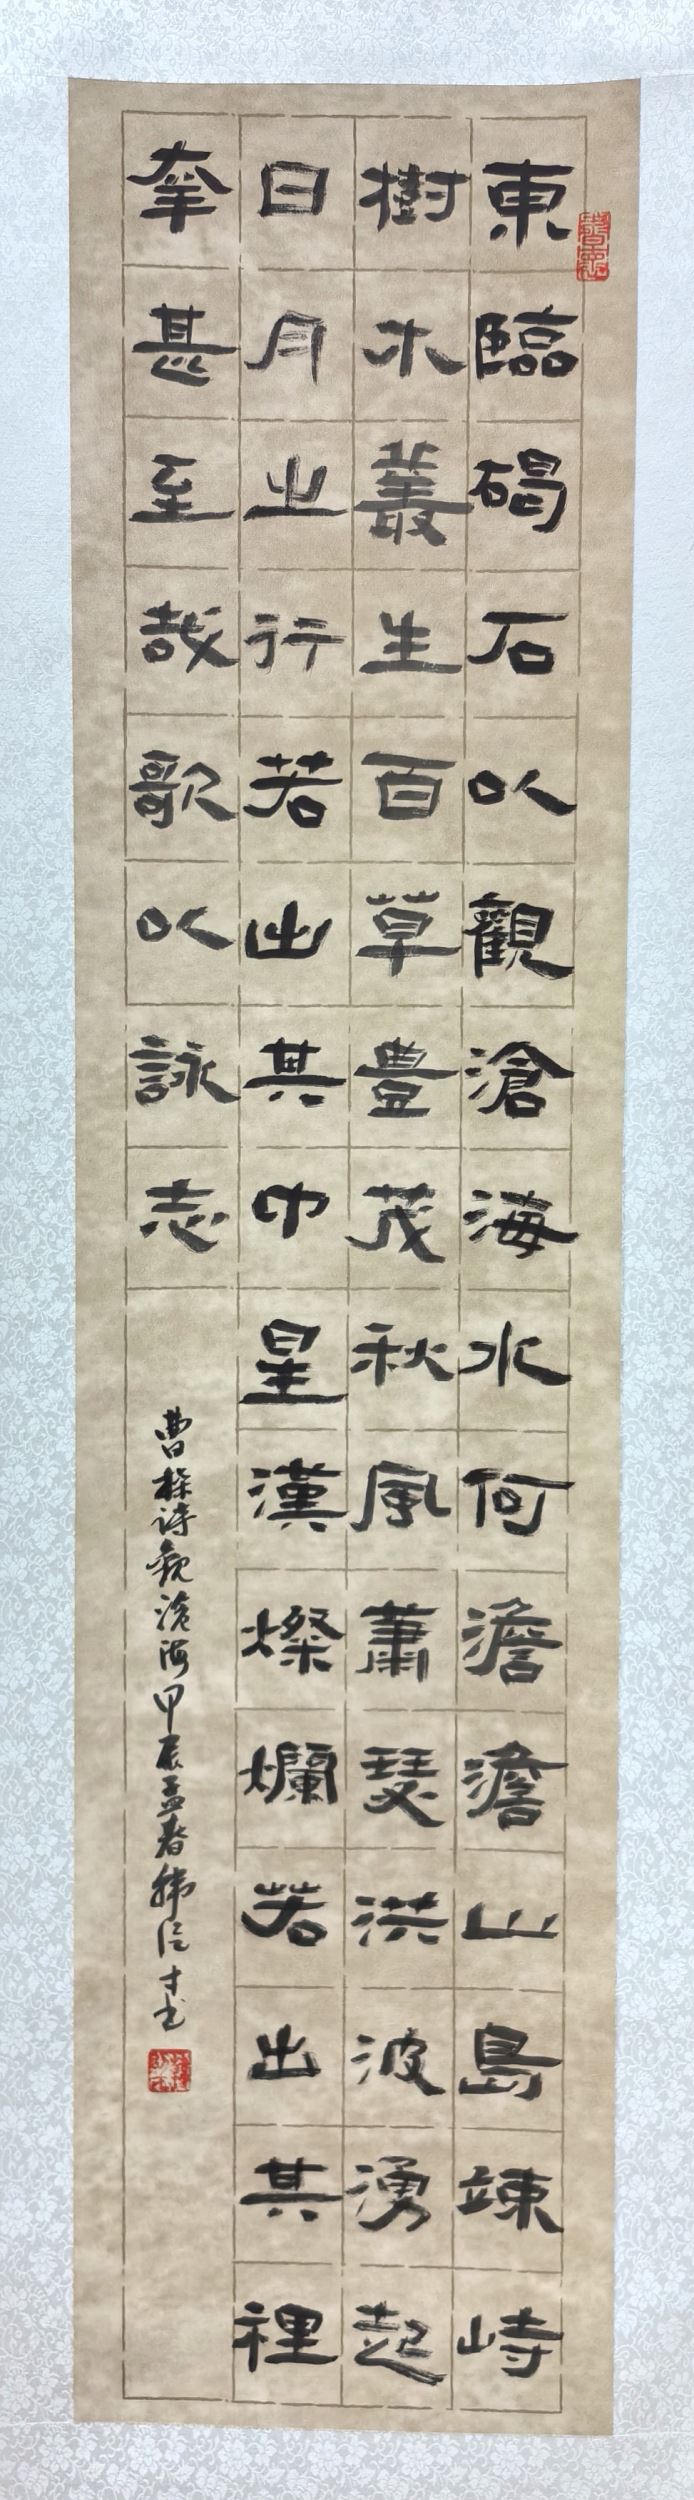 東臨碣石以觀滄海水何澹澹山島竦峙
樹木叢生百草豊茂秋風蕭瑟洪波湧起
日月之行若出其中星漢燦爛若出其裡
幸甚至哉歌以詠志
曹操诗观沧海甲辰孟春